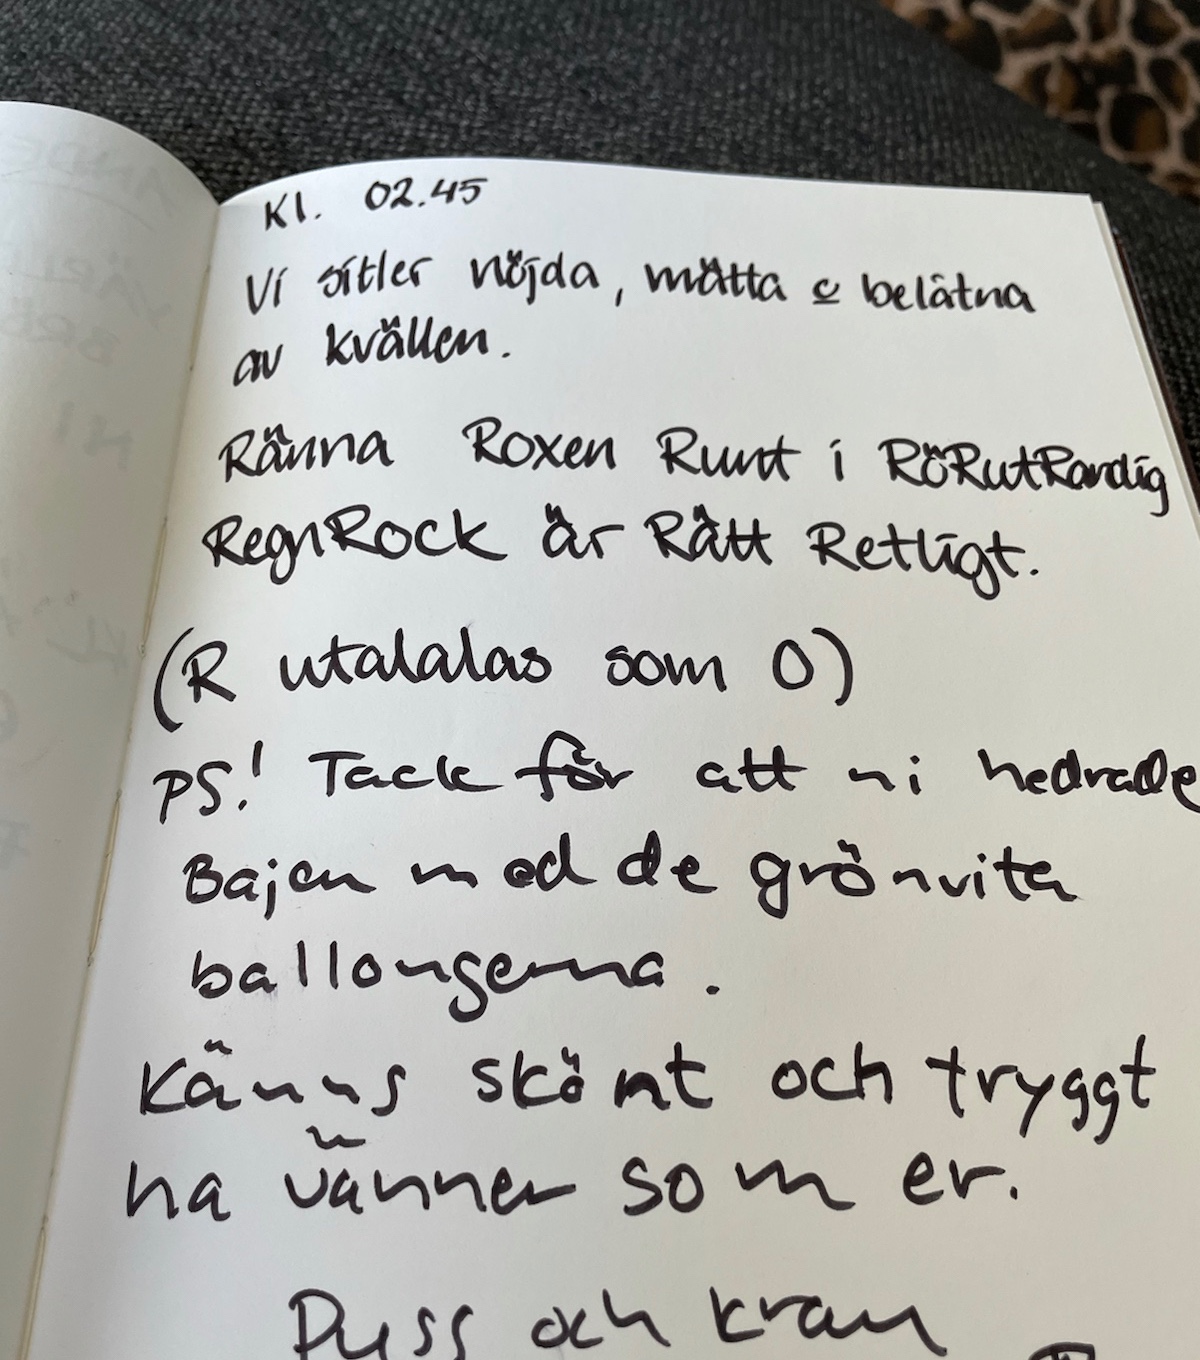 Kl. 02.45
Vi sitter nöjda, mätta & belåtna
av kvällen.
Ränna Roxen Runt i RöRutRandig
RegnRock är Rätt Retligt.
(R utalalas som O)
PS! Tack för att ni hedrade
Bajen med de grönvita
ballongerna.
Känns skönt och tryggt
ha vänner som er.
Puss och kram